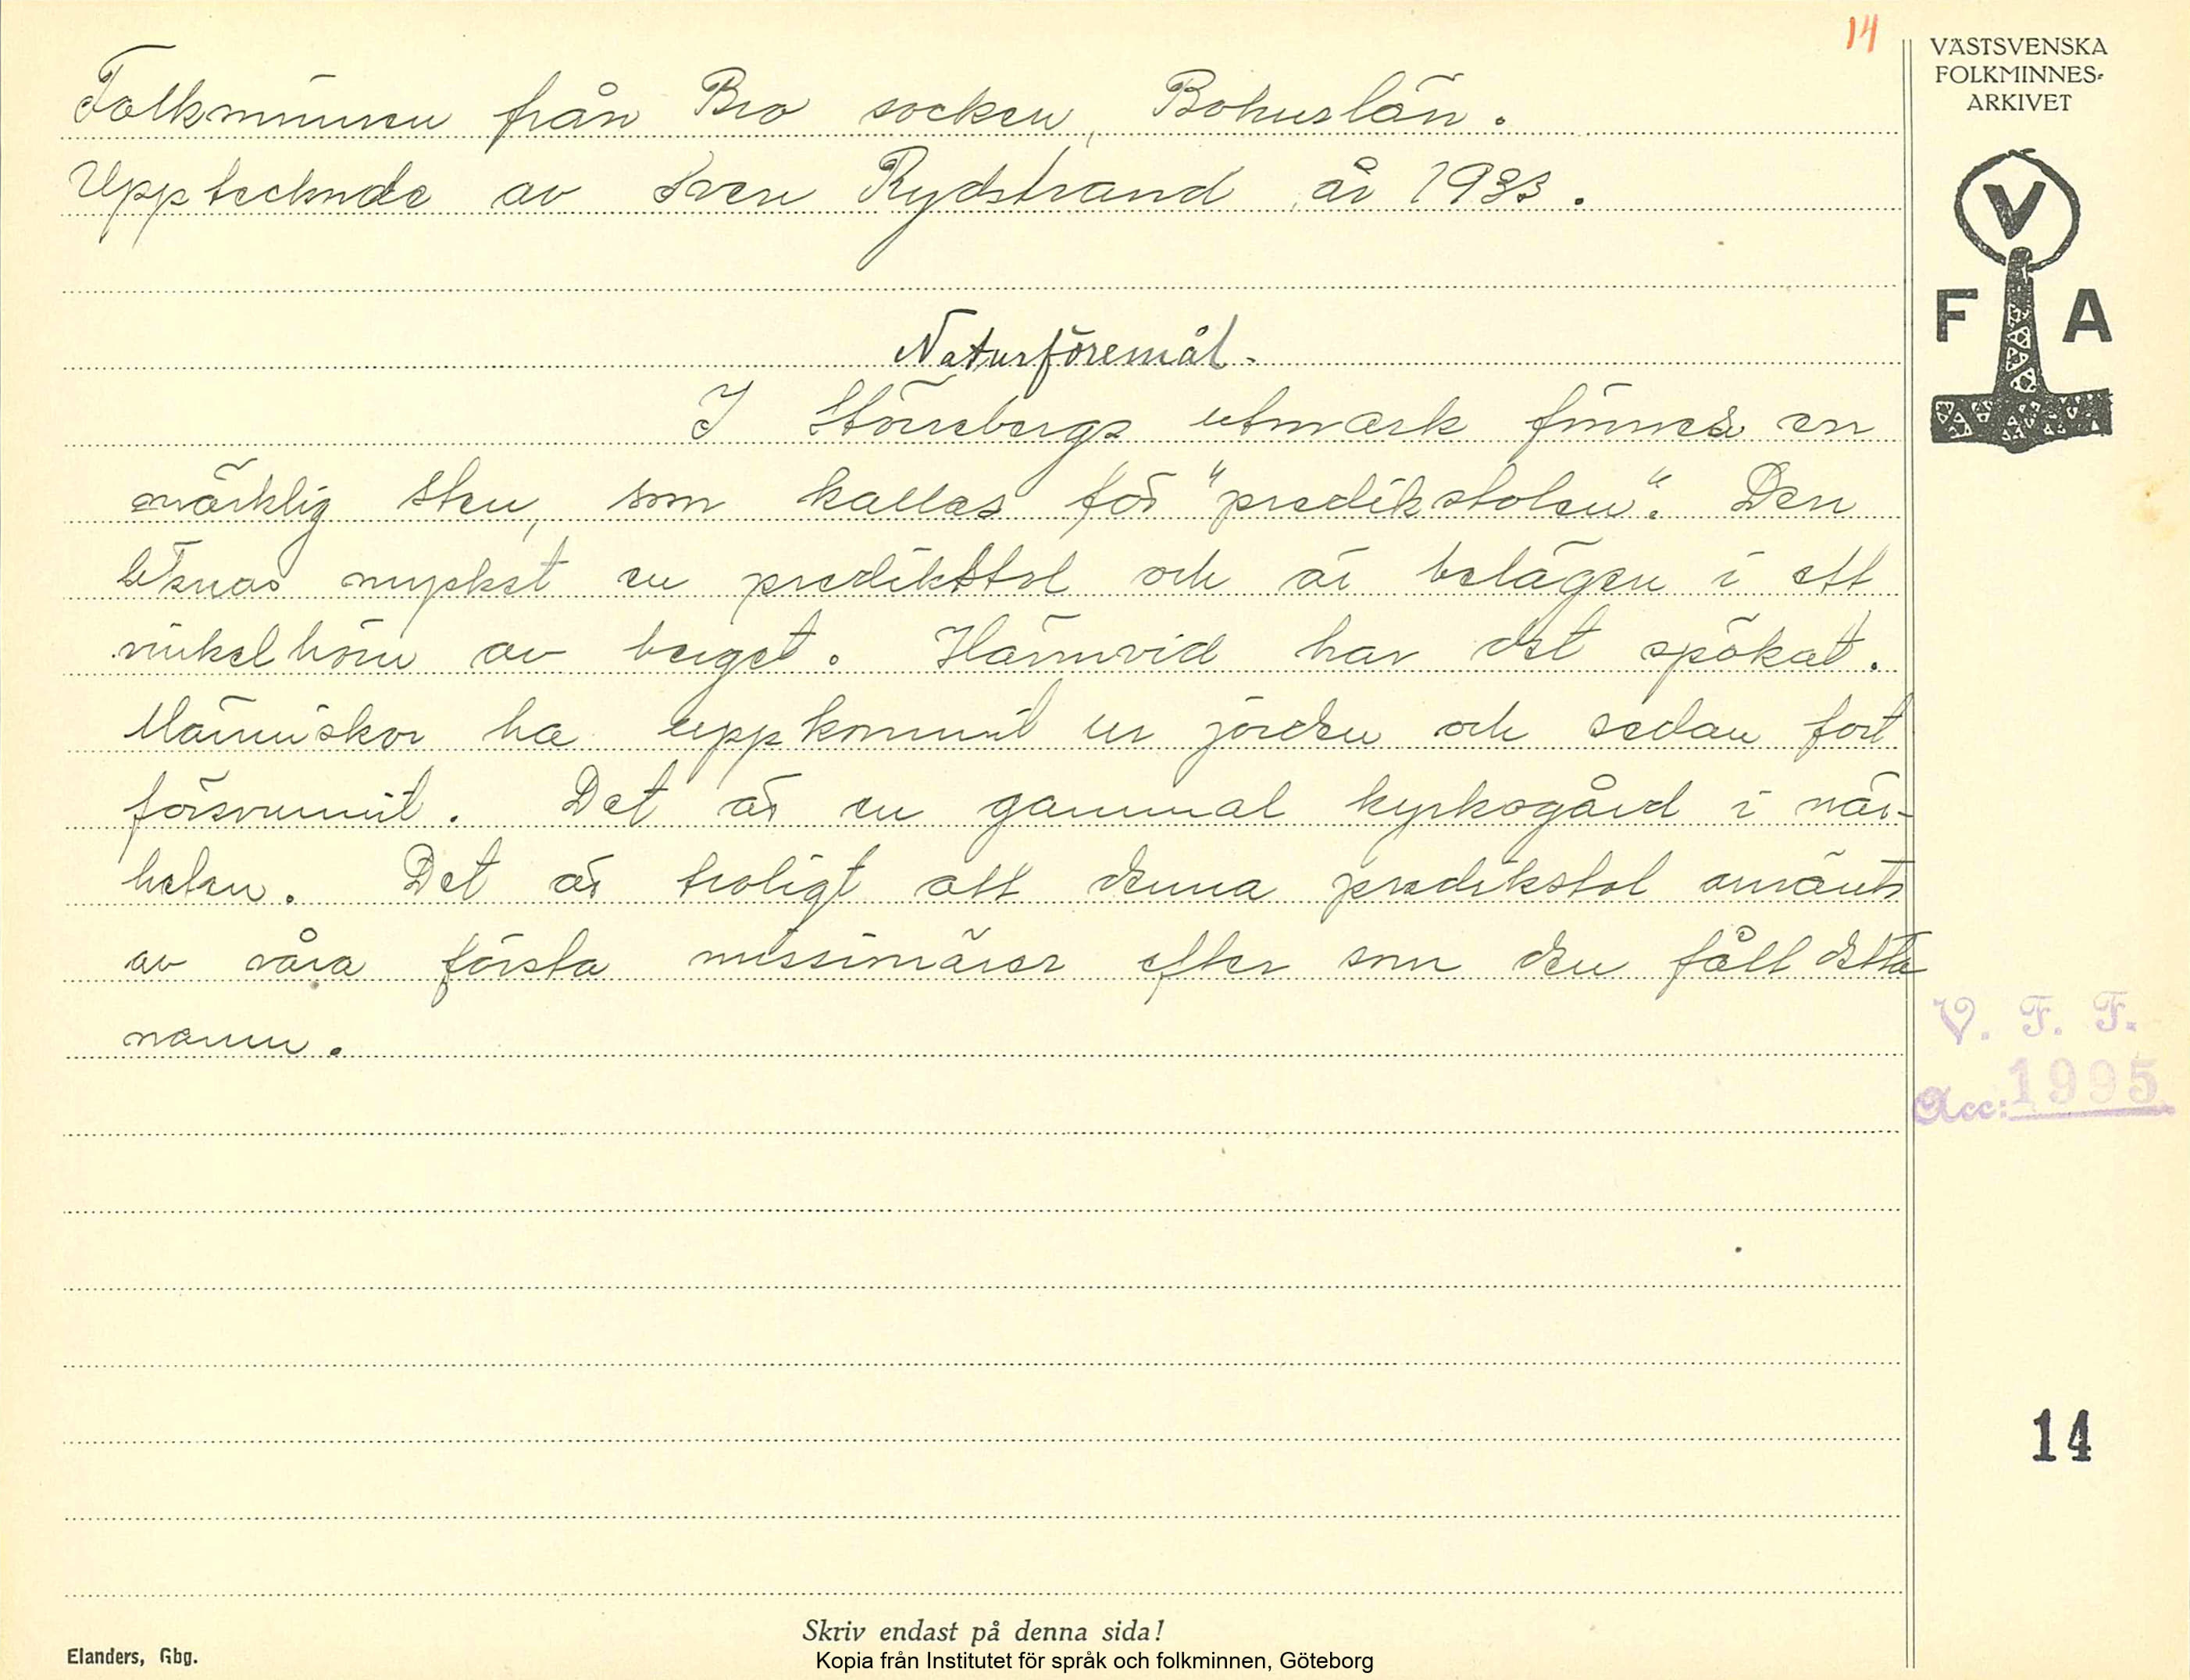 14
VÄSTSVENSKA
FOLKMINNES-
ARKIVET
V
F A
Folkminnen från Bro socken, Bohuslän.
Upptecknde av Sven Rydstrand år 1933.
Naturföremål.
I Störrebergs utmark finnes en
märklig sten, som kallas för "predikstolen". Den
liknas mycket en predikstol och är belägen i ett
vinkelhörn av berget. Härinvid har det spökat.
Människor ha uppkommit ur jorden och sedan fort
försvunnit. Det är en gammal kyrkogård i när-
heten. Det är troligt att denna predikstol använts
av våra första missinärer efter som den fått detta
namn.
V. F. F.
Acc: 1995
14
Skriv endast på denna sida!
Elanders, Gbg.
Kopia från Institutet för språk och folkminnen, Göteborg